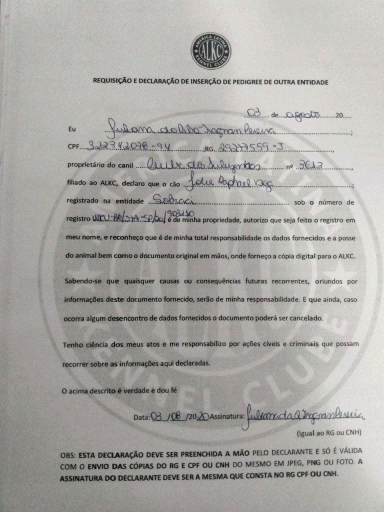 ALKC
REQUISIÇÃO E DECLARAÇÃO DE INSERÇÃO DE PEDIGREE DE OUTRA ENTIDADE
03 de agosto 20
Eu Juliana da Silva
CPF RG
proprietário do canil nº
filiado ao ALKC, declaro que o cão
registrado na entidade Sobraci sob o número de
registro é de minha propriedade, autorizo que seja feito o registro em
meu nome, e reconheço que é de minha total responsabilidade os dados fornecidos e a posse
do animal bem como o documento original em mãos, onde forneço a cópia digital para o ALKC.
Sabendo-se que quaisquer causas ou consequências futuras recorrentes, oriundos por
informações deste documento fornecido, serão de minha responsabilidade. E que ainda, caso
ocorra algum desencontro de dados fornecidos o documento poderá ser cancelado.
Tenho ciência dos meus atos e me responsabilizo por ações civeis e criminais que possam
recorrer sobre as informações aqui declaradas.
O acima descrito é verdade e dou fé
Data: 03 /08 /2020 Assinatura:
(igual ao RG ou CNH)
OBS: ESTA DECLARAÇÃO DEVE SER PREENCHIDA A MÃO PELO DECLARANTE E SÓ É VÁLIDA
COM O ENVIO DAS CÓPIAS DO RG E CPF OU CNH DO MESMO EM JPEG, PNG OU FOTO. A
ASSINATURA DO DECLARANTE DEVE SER A MESMA QUE CONSTA NO RG CPF OU CNH.